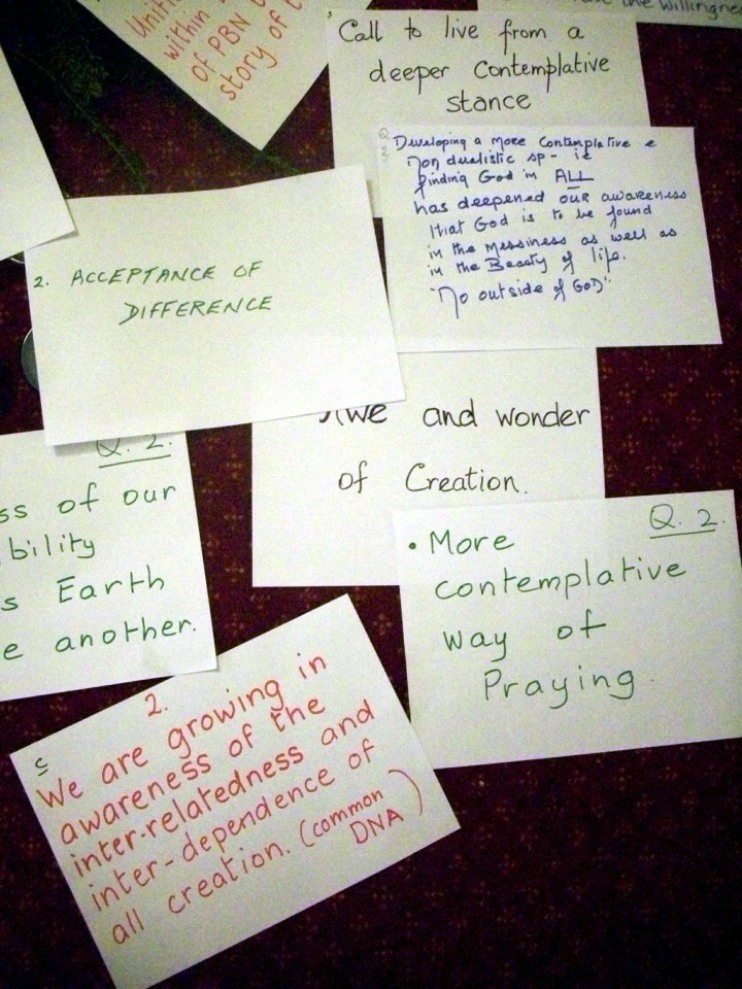 within
of PBN
story of
the willingne
Call to live from a
deeper Contemplative
stance
Q
2
Developing a more Contemplative &
non dualistic sp - ie
finding God in ALL
has deepened our awareness
that God is to be found
in the Messiness as well as
in the Beauty of life.
"No outside of GOD".
2. ACCEPTANCE OF
DIFFERENCE
Awe and wonder
of Creation.
Q. 2.
ss of our
bility
s Earth
e another.
Q. 2.
• More
contemplative
way of
Praying.
2.
We are growing in
awareness of the
inter-relatedness and
inter-dependence of
all creation. (common
DNA)